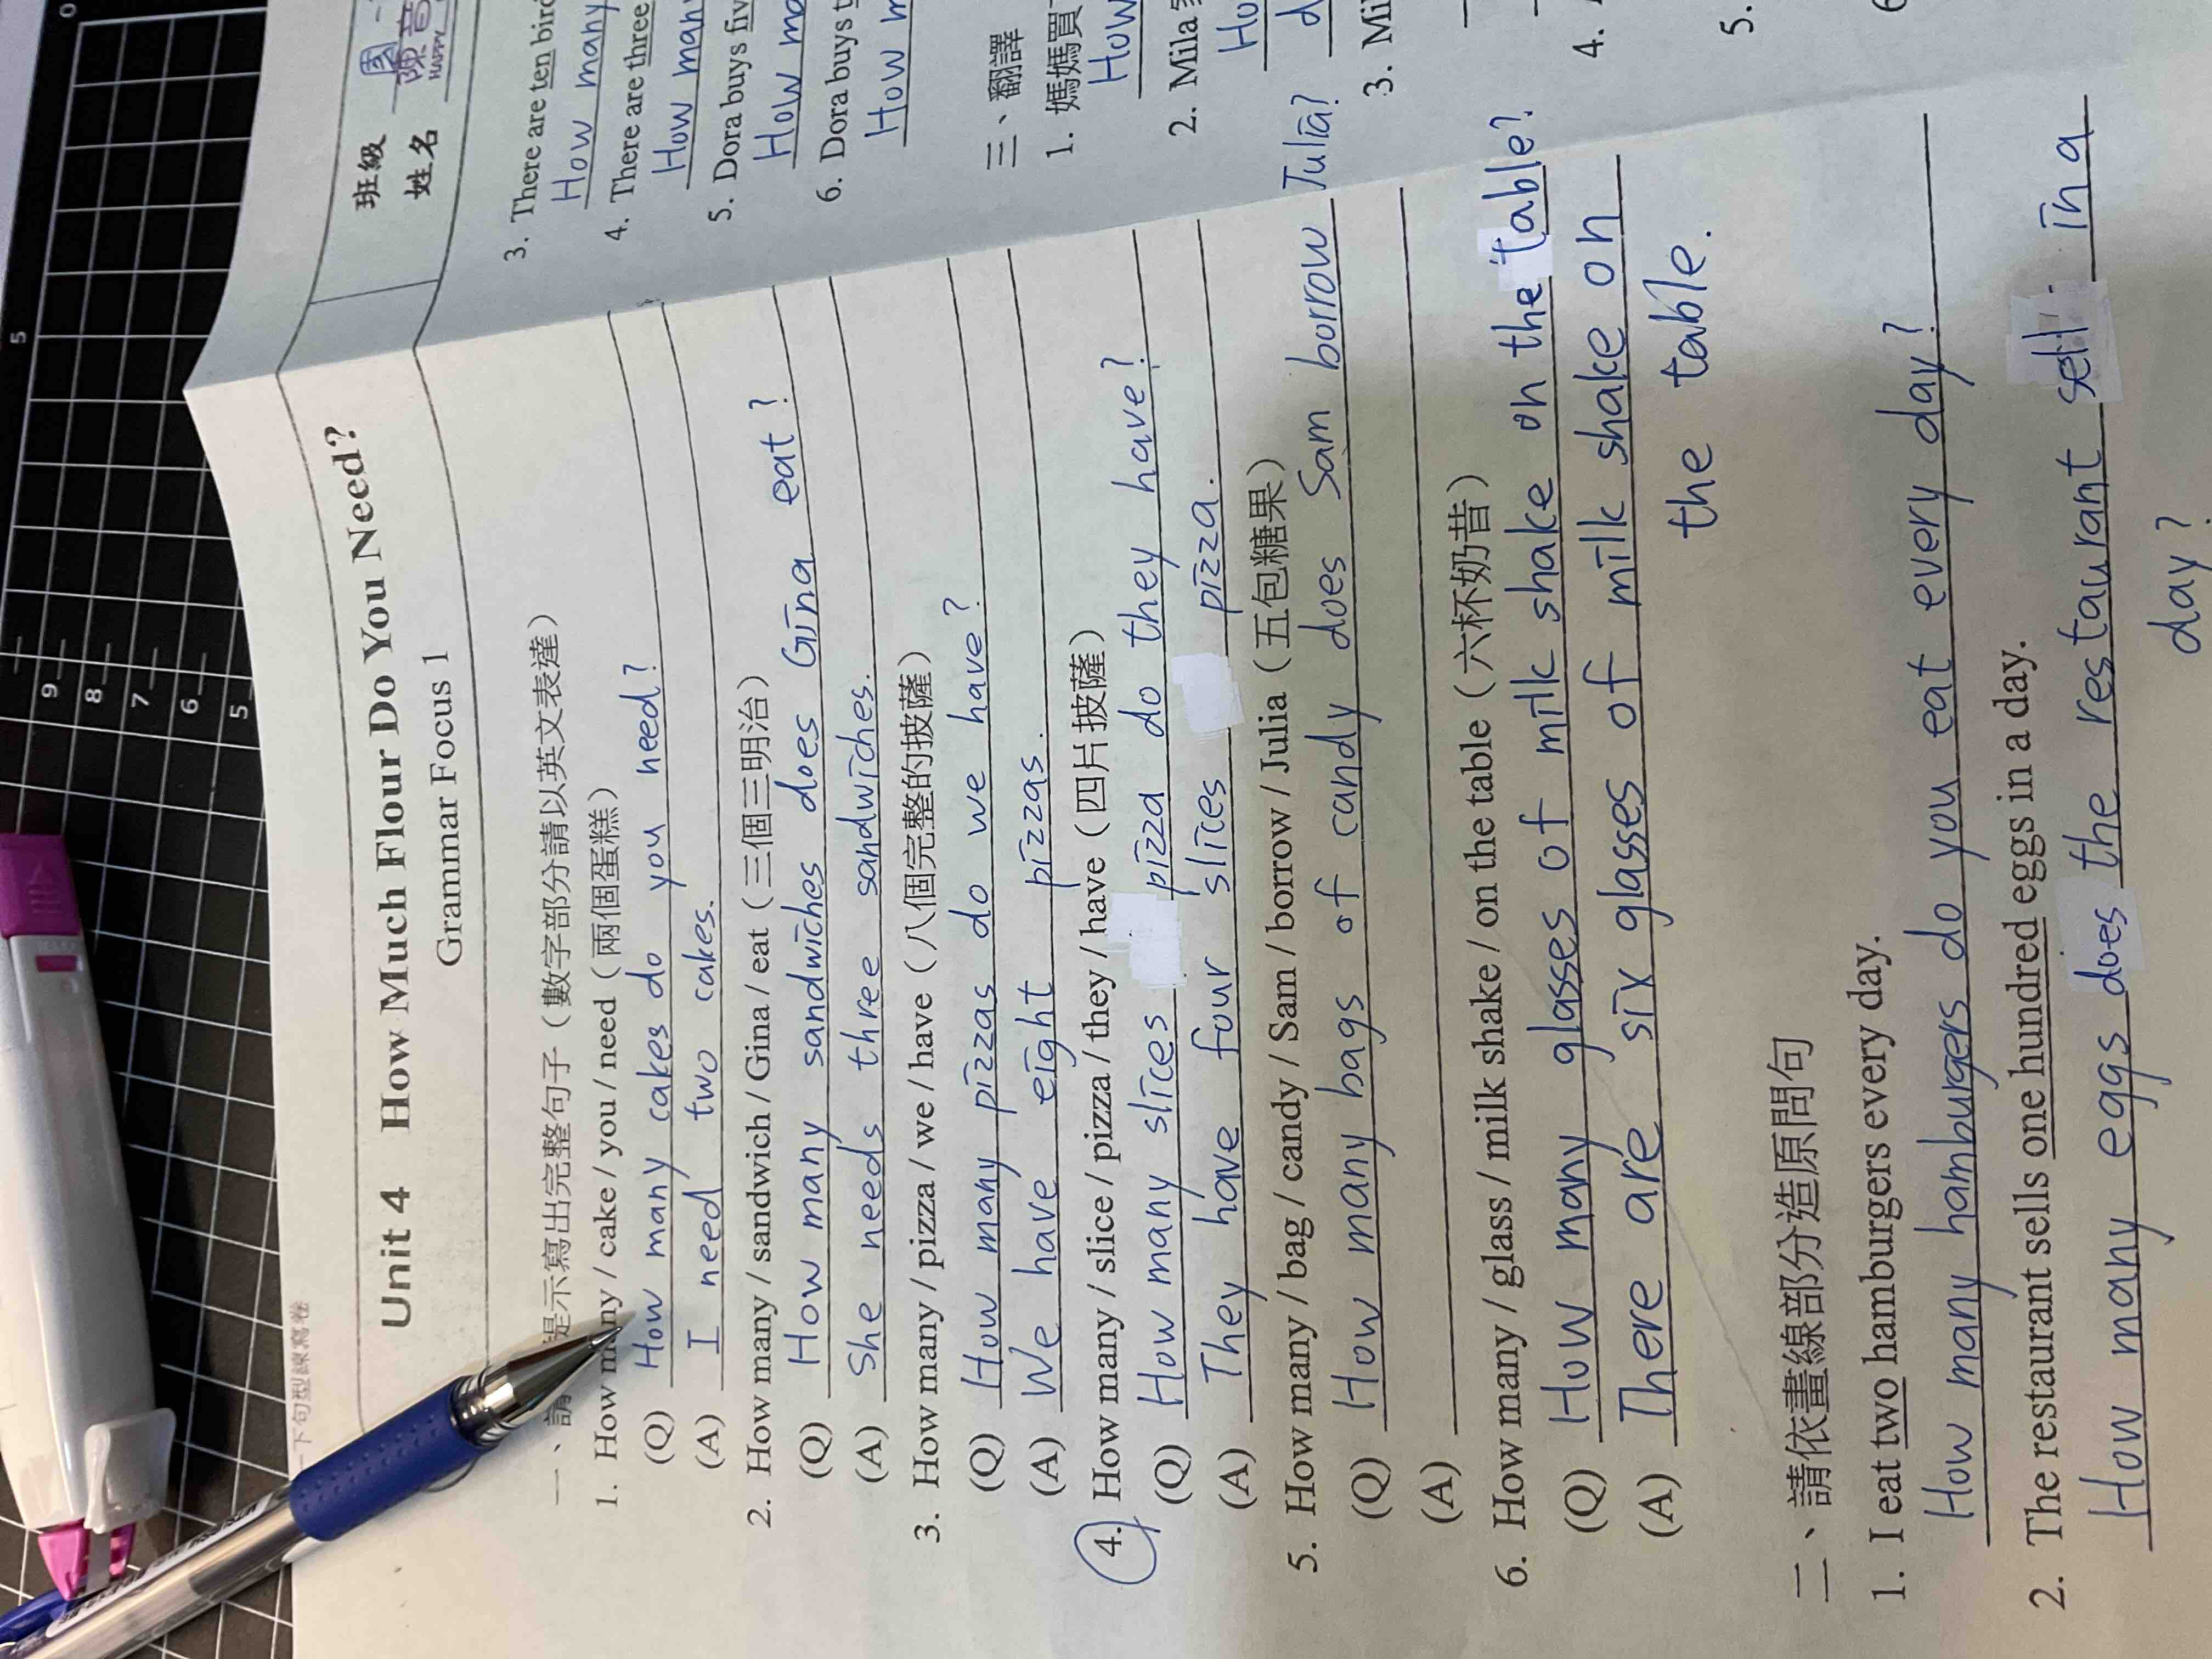 下句型練寫卷
Unit 4 How Much Flour Do You Need?
Grammar Focus 1
班級
姓名
HAPPY
一、請 是示寫出完整句子（數字部分請以英文表達）
1. How many / cake / you / need（兩個蛋糕）
(Q) How many cakes do you need?
(A) I need two cakes.
2. How many / sandwich / Gina / eat（三個三明治）
(Q) How many sandwiches does Gina eat?
(A) She needs three sandwiches.
3. How many / pizza / we / have（八個完整的披薩）
(Q) How many pizzas do we have?
(A) We have eight pizzas.
4. How many / slice / pizza / they / have（四片披薩）
(Q) How many slices pizza do they have?
(A) They have four slices pizza.
5. How many / bag / candy / Sam / borrow / Julia（五包糖果）
(Q) How many bags of candy does Sam borrow Julia?
(A)
6. How many / glass / milk shake / on the table（六杯奶昔）
(Q) How many glasses of milk shake on the table?
(A) There are six glasses of milk shake on
the table.
二、請依畫線部分造原問句
1. I eat two hamburgers every day.
How many hamburgers do you eat every day?
2. The restaurant sells one hundred eggs in a day.
How many eggs does the restaurant sell in a
day?
3. There are ten bird
How many
4. There are three
How many
5. Dora buys fiv
How ma
6. Dora buys t
How m
三、翻譯
1. 媽媽買
How
2. Mila
Ho
d
3. Mi
4.
5.